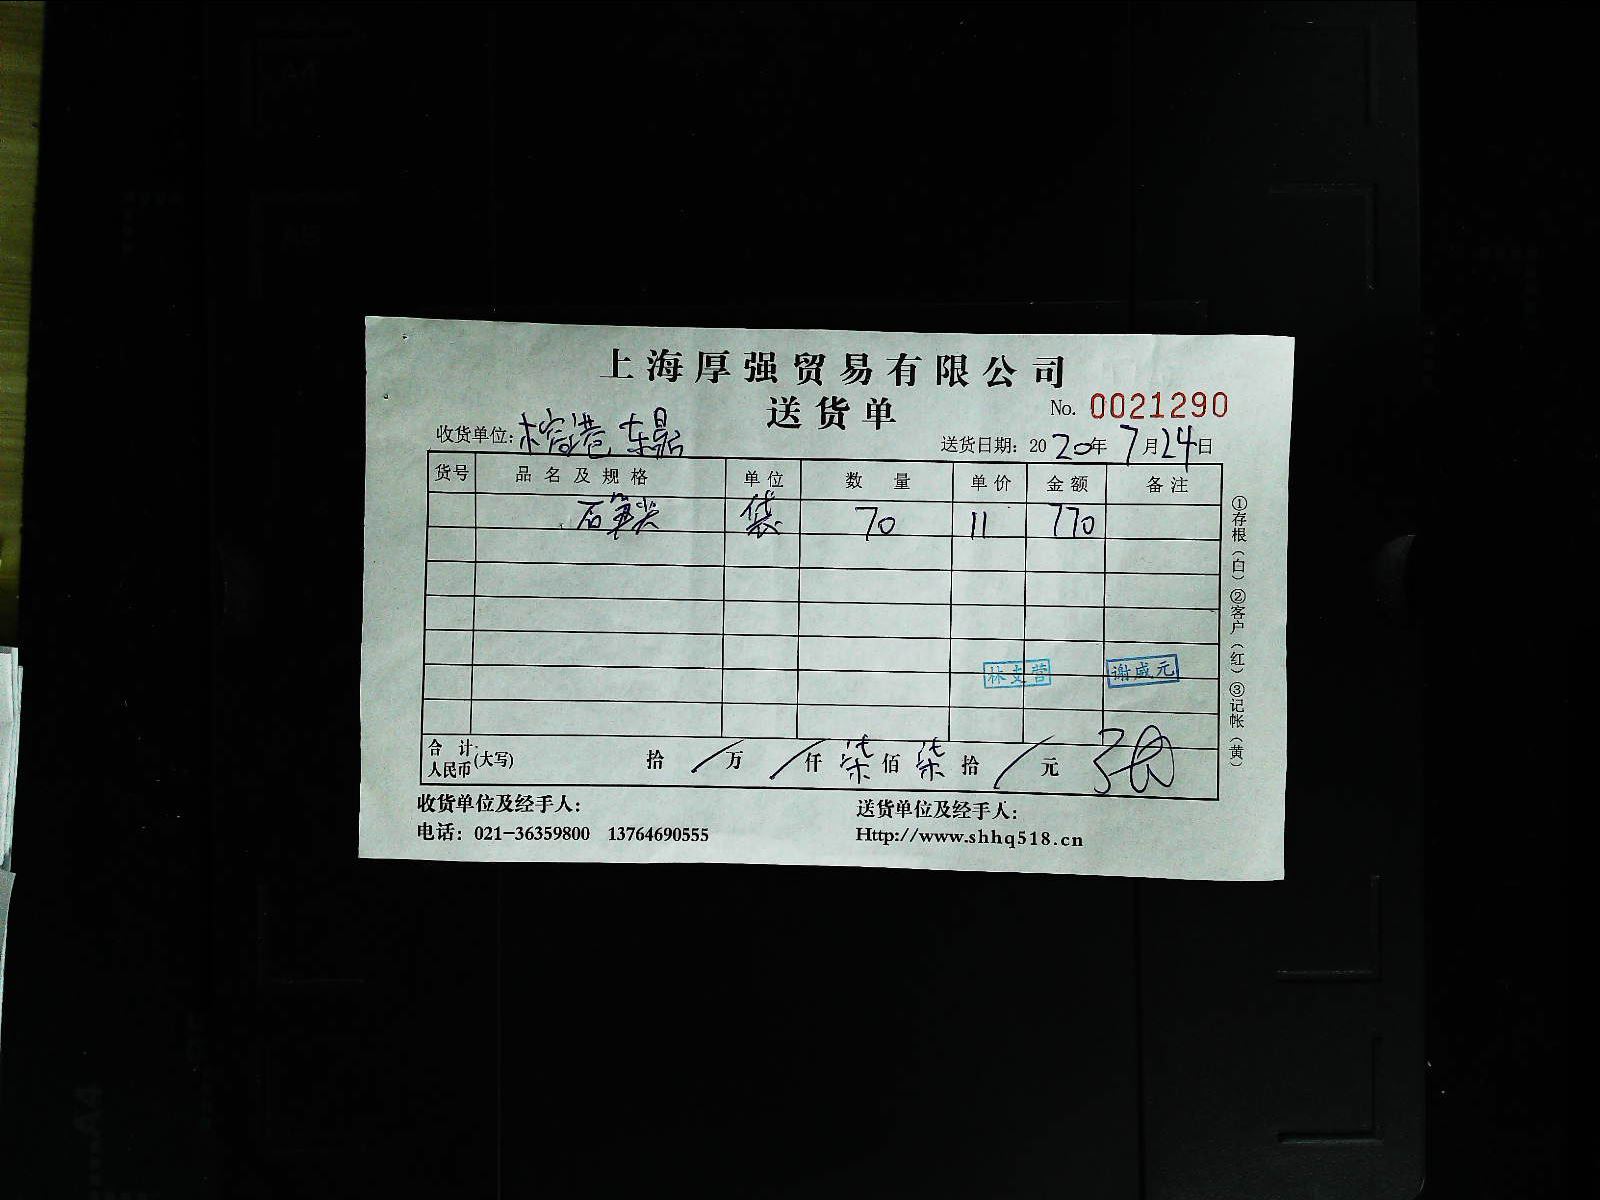 上海厚强贸易有限公司
送货单
No. 0021290
收货单位: 榕港 东晶
送货日期: 2020年7月24日
货号 品名及规格 单位 数量 单价 金额 备注
石笋尖 袋 70 11 770
谢咸元
合计人民币(大写) 拾 / 万 / 仟 柒 佰 柒 拾 / 元
收货单位及经手人:
送货单位及经手人:
电话: 021-36359800 13764690555
Http://www.shhq518.cn
①存根(白)②客户(红)③记帐(黄)